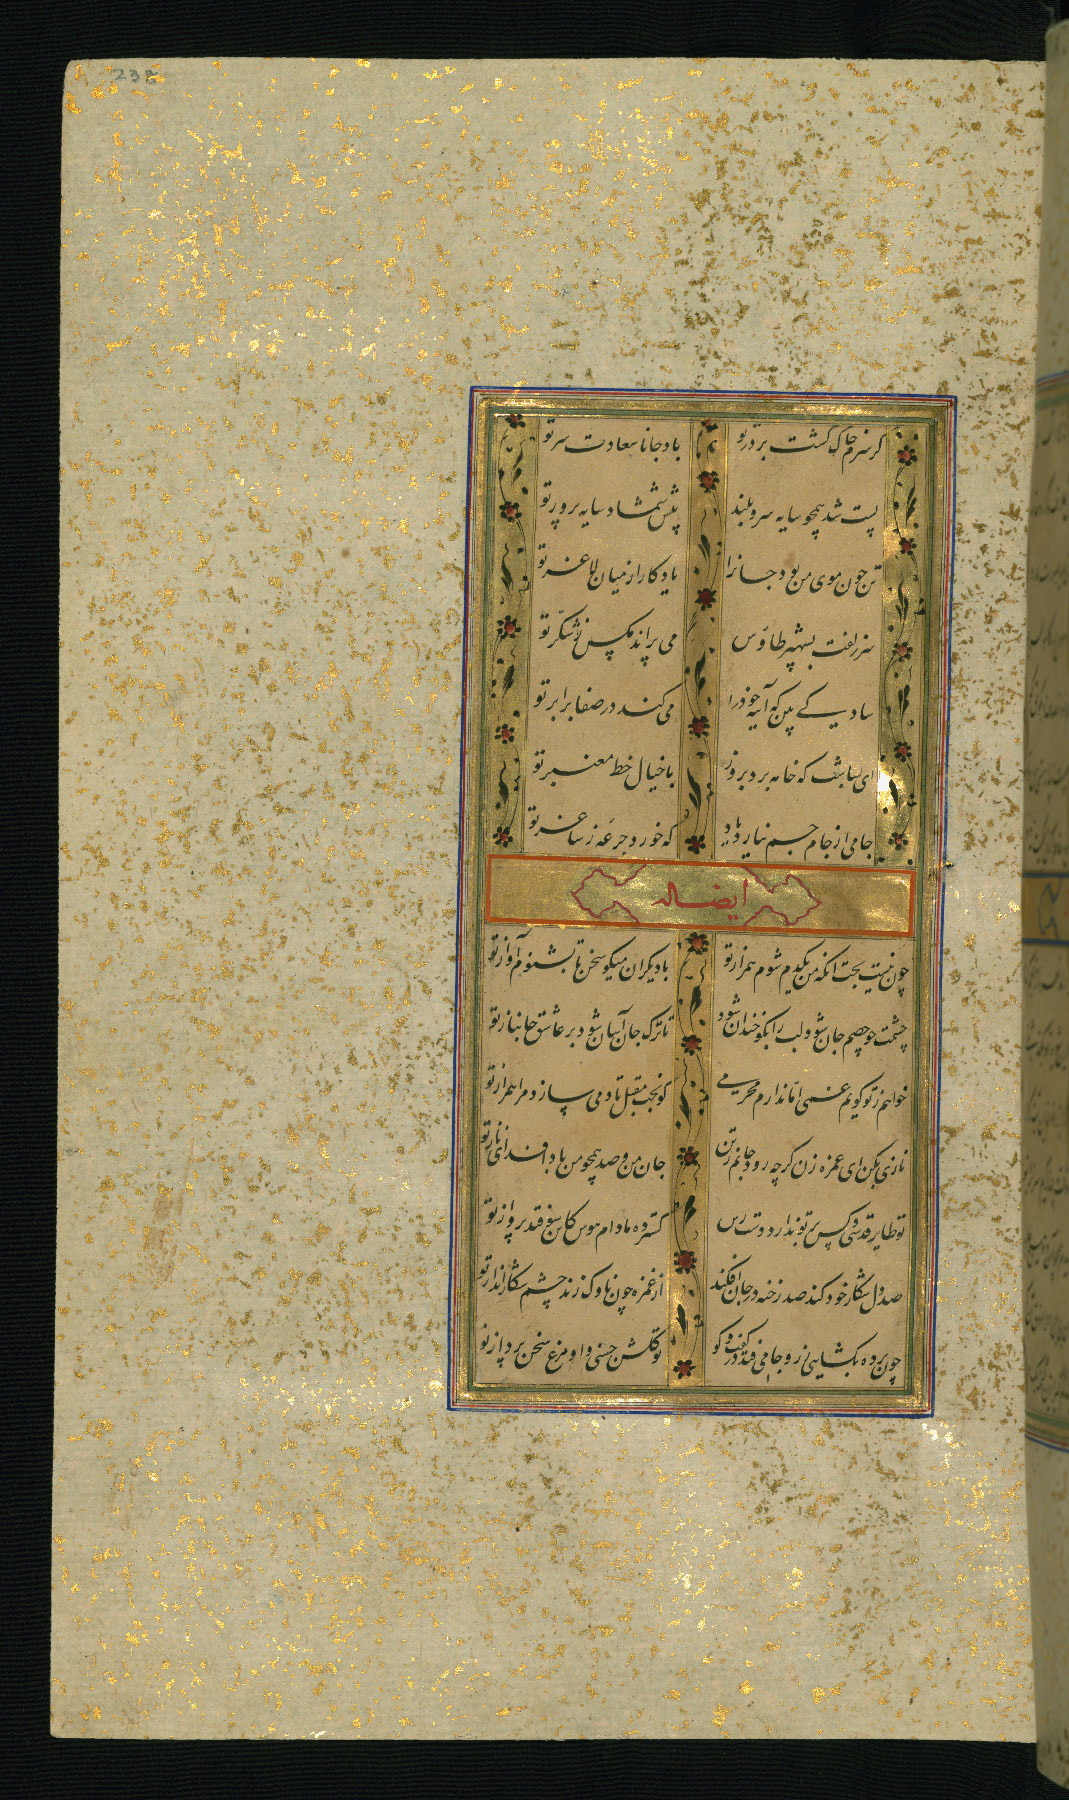 232
گر سرم خاک گشت بر در تو باد جانا سعادت سر تو
پست شد همچو سایه سرو بلند پیش شمشاد سایه پرور تو
تن چون موی من بود جانرا یادگار از میان لاغر تو
سر زلفت بشهپر طاوس می پراند مگس ز شکر تو
سادیی بین که آینه خود را می کند در صفا برابر تو
ای بسا شب که خامه برد بروز با خیال خط معنبر تو
جامی از جام جم نیارد یاد که خورد جرعه ز ساغر تو
ایضا له
چون نیست بخت آنکه من یکدم شوم همراز تو با دیگران میگو سخن تا بشنوم آواز تو
چشمت چو خصم جان شود لب را بگو خندان شود تا ترک جان آسان شود بر عاشق جانباز تو
خواهم ز تو گویم غمی اما ندارم محرمی کو بخت مقبل تا دمی سازد مرا همراز تو
نازی بکن ای غمزه زن گر چه رود جانم ز تن جان من و صد همچو من بادا فدای ناز تو
تو طایر قدسی و کس بر تو ندارد دست رس گسترده ما دام هوس کاین سو فتد پرواز تو
صد دل شکار خود کند صد رخنه در جان افکند از غمزه چون ناوک زند چشم شکار انداز تو
چون پرده بگشایی ز رو جامی فتد در گفت و گو تو گلشن حسنی و او مرغ سخن پرداز تو